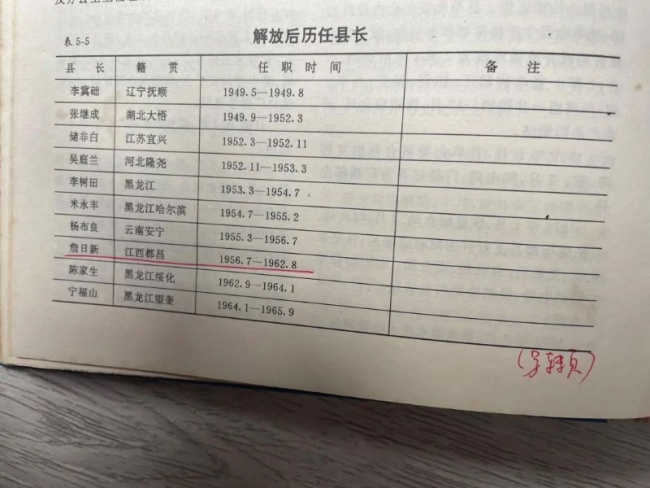 表 5-5
解放后历任县长
县 长 籍 贯 任 职 时 间 备 注
李冀础 辽宁抚顺 1949.5—1949.8
张继成 湖北大悟 1949.9—1952.3
储非白 江苏宜兴 1952.3—1952.11
吴庭兰 河北隆尧 1952.11—1953.3
李树田 黑龙江 1953.3—1954.7
米永丰 黑龙江哈尔滨 1954.7—1955.2
杨布良 云南安宁 1955.3—1956.7
詹日新 江西都昌 1956.7—1962.8
陈家生 黑龙江绥化 1962.9—1964.1
宁福山 黑龙江望奎 1964.1—1965.9